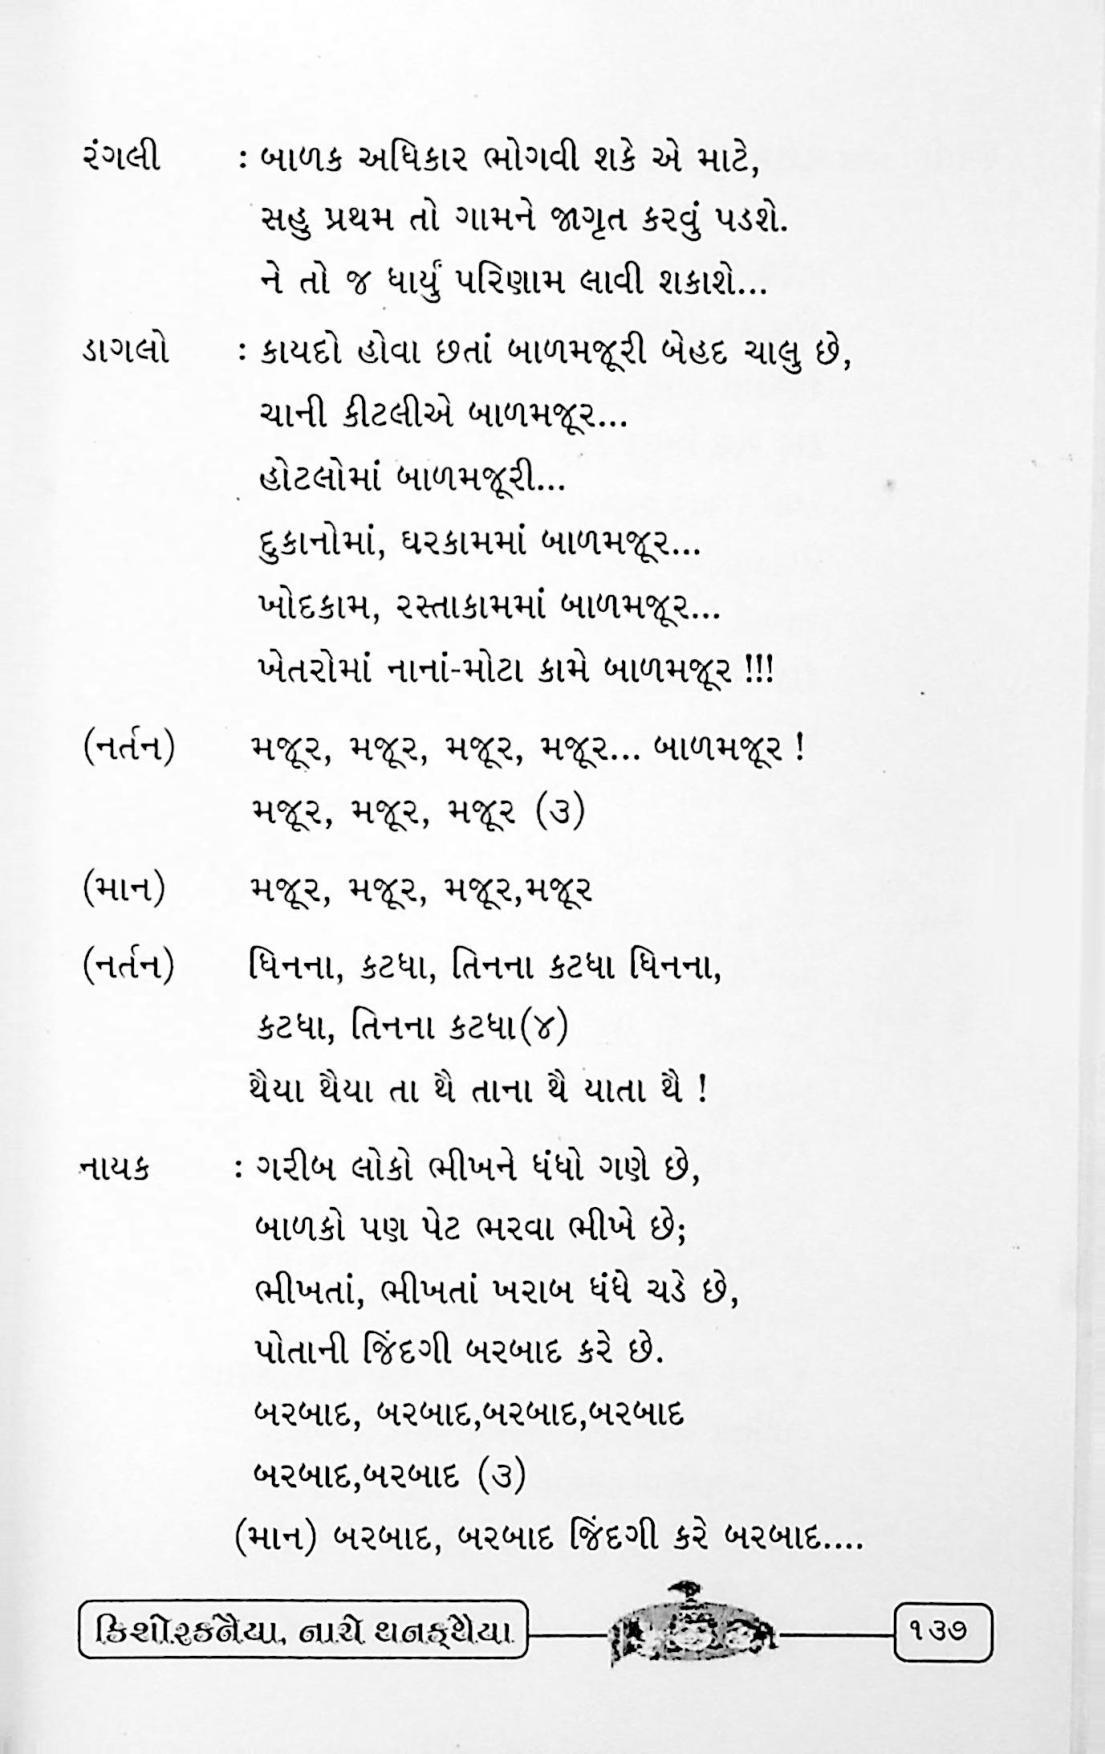 રંગલી : બાળક અધિકાર ભોગવી શકે એ માટે,
સહુ પ્રથમ તો ગામને જાગૃત કરવું પડશે.
ને તો જ ધાર્યું પરિણામ લાવી શકાશે...
ડાગલો : કાયદો હોવા છતાં બાળમજૂરી બેહદ ચાલુ છે,
ચાની કીટલીએ બાળમજૂર...
હોટલોમાં બાળમજૂરી...
દુકાનોમાં, ઘરકામમાં બાળમજૂર...
ખોદકામ, રસ્તાકામમાં બાળમજૂર...
ખેતરોમાં નાનાં-મોટા કામે બાળમજૂર !!!
(નર્તન) મજૂર, મજૂર, મજૂર, મજૂર... બાળમજૂર !
મજૂર, મજૂર, મજૂર (૩)
(માન) મજૂર, મજૂર, મજૂર,મજૂર
(નર્તન) ધિનના, કટધા, તિનના કટધા ધિનના,
કટધા, તિનના કટધા(૪)
થૈયા થૈયા તા થૈ તાના થૈ યાતા થૈ !
નાયક : ગરીબ લોકો ભીખને ધંધો ગણે છે,
બાળકો પણ પેટ ભરવા ભીખે છે;
ભીખતાં, ભીખતાં ખરાબ ધંધે ચડે છે,
પોતાની જિંદગી બરબાદ કરે છે.
બરબાદ, બરબાદ,બરબાદ,બરબાદ
બરબાદ,બરબાદ (૩)
(માન) બરબાદ, બરબાદ જિંદગી કરે બરબાદ....
કિશોરકનૈયા, નાચો થનક્થૈયા ૧૩૭